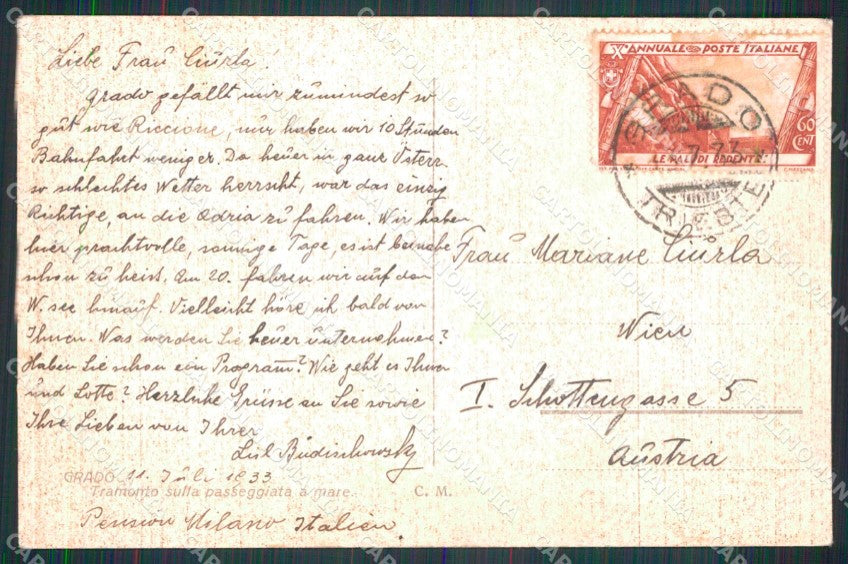 Liebe Frau Ciurla!
Grado gefällt mir zumindest so
gut wie Riccione, nur haben wir 10 Stunden
Bahnfahrt weniger. Da heuer in ganz Österr.
so schlechtes Wetter herrscht, war das einzig
Richtige, an die Adria zu fahren. Wir haben
hier prachtvolle, sonnige Tage, es ist beinahe
schon zu heiss. Am 20. fahren wir auf den
W. see hinauf. Vielleicht höre ich bald von
Ihnen. Was werden Sie heuer unternehmen?
Haben Sie schon ein Program? Wie geht es Ihnen
und Lotte? Herzliche Grüsse an Sie sowie
Ihre Lieben von Ihrer
Lisl Budischowsky
GRADO 11. Juli 1933
Tramonto sulla passeggiata a mare. C. M.
Pension Milano Italien.
X ANNUALE POSTE ITALIANE
60 CENT
LE MALDI REDENTE
GRADO
TRIESTE
Frau Mariane Ciurla
Wien
I. Schottengasse 5
Austria
CARTOLINOMANIA